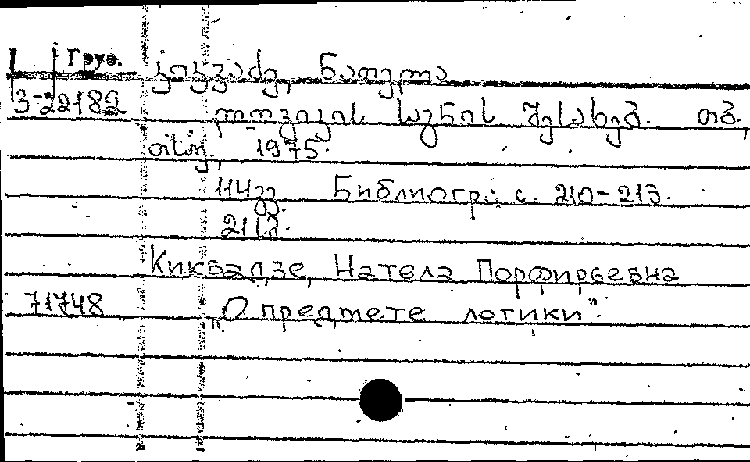 Груз. კიკვაძე, ნათელა
3-22182
ლოგიკის საგნის შესახებ. თბ.,
თსუ, 1975.
114 გვ. Библиогр.: с. 210-213.
21 სმ.
Киквадзе, Натела Порфирьевна
71748 „О предмете логики".